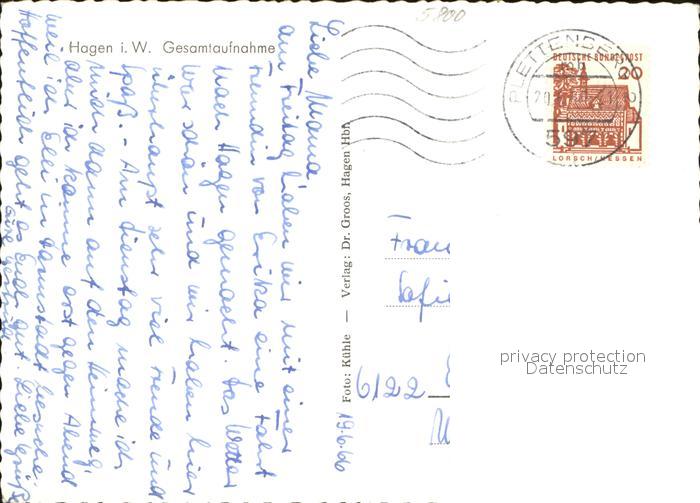 5800
Hagen i. W. Gesamtaufnahme
Liebe Mama
am Freitag haben wir mit einer
Freundin von Erika eine Fahrt
nach Hagen gemacht. Das Wetter
war schön und wir haben hier
überhaupt sehr viel Freude und
Spaß. - Am Dienstag mache ich
mich dann auf den Heimweg,
aber ich komme erst gegen Abend
weil ich bei in Darmstadt besuche.
Hoffentlich geht es Euch gut. Liebe Grüße
Foto: Kühle — Verlag: Dr. Groos, Hagen Hbf.
19.6.66
PLETTENBERG
20
597
DEUTSCHE BUNDESPOST
20
LORSCH/HESSEN
Frau
Sofie
6122
privacy protection
Datenschutz